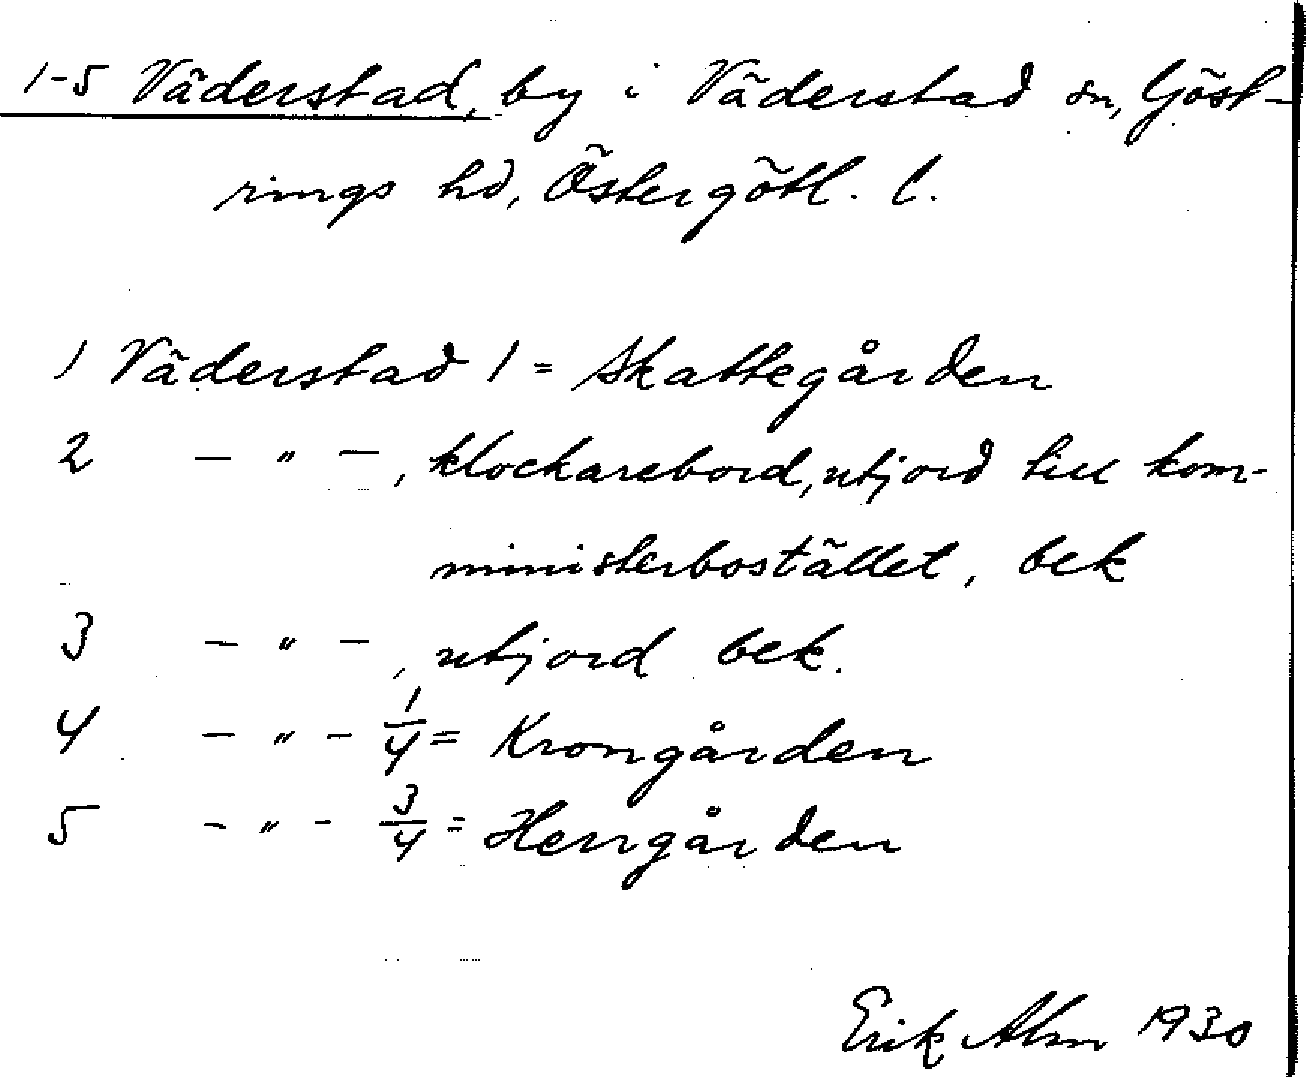 1-5 Väderstad, by i Väderstad sn, Göst-
rings hd, Östergötl. l.
1 Väderstad 1 = Skattegården
2 - " - , klockarebord, utjord till kom-
ministerbostället, bek
3 - " - , utjord bek.
4 - " - 1/4 = Krongården
5 - " - 3/4 = Herrgården
Erik Alm 1930